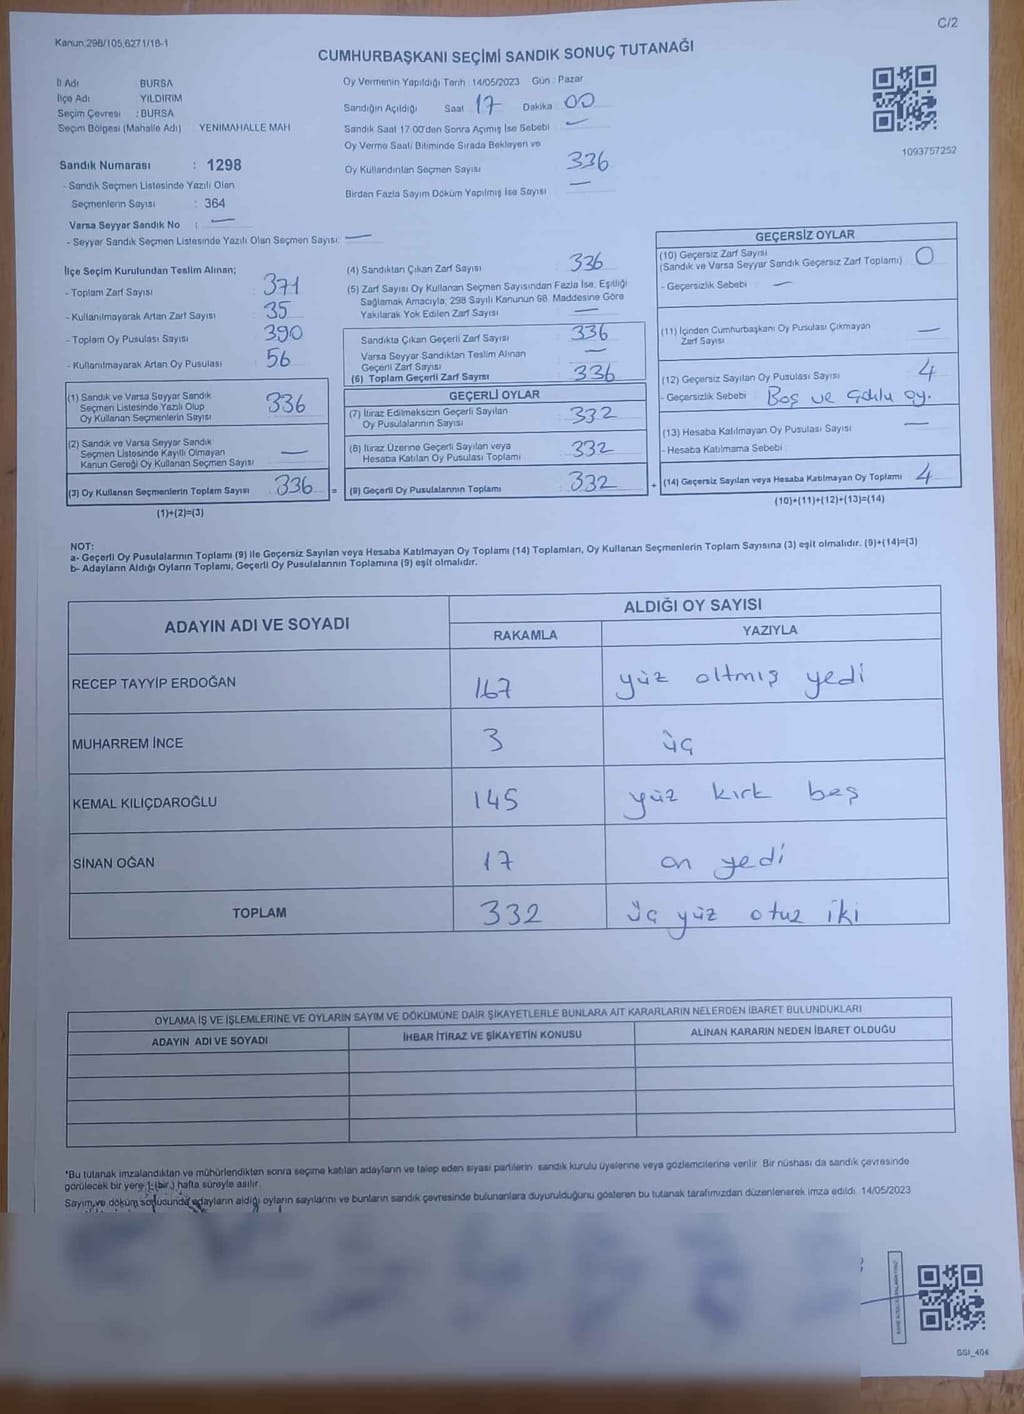 C/2
Kanun:298/105,6271/18-1
CUMHURBAŞKANI SEÇİMİ SANDIK SONUÇ TUTANAĞI
İl Adı : BURSA
İlçe Adı : YILDIRIM
Seçim Çevresi : BURSA
Seçim Bölgesi (Mahalle Adı) YENİMAHALLE MAH
Sandık Numarası : 1298
- Sandık Seçmen Listesinde Yazılı Olan
Seçmenlerin Sayısı : 364
Varsa Seyyar Sandık No : —
- Seyyar Sandık Seçmen Listesinde Yazılı Olan Seçmen Sayısı: —
Oy Vermenin Yapıldığı Tarih : 14/05/2023 Gün : Pazar
Sandığın Açıldığı Saat 17 Dakika 00
Sandık Saat 17.00'den Sonra Açımış İse Sebebi —
Oy Verme Saati Bitiminde Sırada Bekleyen ve
Oy Kullandırılan Seçmen Sayısı 336
Birden Fazla Sayım Döküm Yapılmış İse Sayısı —
1093757252
İlçe Seçim Kurulundan Teslim Alınan;
- Toplam Zarf Sayısı 371
- Kullanılmayarak Artan Zarf Sayısı 35
- Toplam Oy Pusulası Sayısı 390
- Kullanılmayarak Artan Oy Pusulası 56
(1) Sandık ve Varsa Seyyar Sandık
Seçmen Listesinde Yazılı Olup
Oy Kullanan Seçmenlerin Sayısı 336
(2) Sandık ve Varsa Seyyar Sandık
Seçmen Listesinde Kayıtlı Olmayan
Kanun Gereği Oy Kullanan Seçmen Sayısı —
(3) Oy Kullanan Seçmenlerin Toplam Sayısı 336 =
(1)+(2)=(3)
(4) Sandıktan Çıkan Zarf Sayısı 336
(5) Zarf Sayısı Oy Kullanan Seçmen Sayısından Fazla İse, Eşitliği
Sağlamak Amacıyla, 298 Sayılı Kanunun 98. Maddesine Göre
Yakılarak Yok Edilen Zarf Sayısı —
Sandıkta Çıkan Geçerli Zarf Sayısı 336
Varsa Seyyar Sandıktan Teslim Alınan
Geçerli Zarf Sayısı —
(6) Toplam Geçerli Zarf Sayısı 336
GEÇERLİ OYLAR
(7) İtiraz Edilmeksizin Geçerli Sayılan
Oy Pusulalarının Sayısı 332
(8) İtiraz Üzerine Geçerli Sayılan veya
Hesaba Katılan Oy Pusulası Toplamı 332
(9) Geçerli Oy Pusulalarının Toplamı 332 +
GEÇERSİZ OYLAR
(10) Geçersiz Zarf Sayısı
(Sandık ve Varsa Seyyar Sandık Geçersiz Zarf Toplamı) 0
- Geçersizlik Sebebi —
(11) İçinden Cumhurbaşkanı Oy Pusulası Çıkmayan
Zarf Sayısı —
(12) Geçersiz Sayılan Oy Pusulası Sayısı 4
- Geçersizlik Sebebi Boş ve Çoklu oy.
(13) Hesaba Katılmayan Oy Pusulası Sayısı —
- Hesaba Katılmama Sebebi
(14) Geçersiz Sayılan veya Hesaba Katılmayan Oy Toplamı 4
(10)+(11)+(12)+(13)=(14)
NOT:
a- Geçerli Oy Pusulalarının Toplamı (9) ile Geçersiz Sayılan veya Hesaba Katılmayan Oy Toplamı (14) Toplamları, Oy Kullanan Seçmenlerin Toplam Sayısına (3) eşit olmalıdır. (9)+(14)=(3)
b- Adayların Aldığı Oyların Toplamı, Geçerli Oy Pusulalarının Toplamına (9) eşit olmalıdır.
ADAYIN ADI VE SOYADI
ALDIĞI OY SAYISI
RAKAMLA YAZIYLA
RECEP TAYYİP ERDOĞAN 167 yüz altmış yedi
MUHARREM İNCE 3 üç
KEMAL KILIÇDAROĞLU 145 yüz kırk beş
SİNAN OĞAN 17 on yedi
TOPLAM 332 üç yüz otuz iki
OYLAMA İŞ VE İŞLEMLERİNE VE OYLARIN SAYIM VE DÖKÜMÜNE DAİR ŞİKAYETLERLE BUNLARA AİT KARARLARIN NELERDEN İBARET BULUNDUKLARI
ADAYIN ADI VE SOYADI İHBAR İTİRAZ VE ŞİKAYETİN KONUSU ALINAN KARARIN NEDEN İBARET OLDUĞU
*Bu tutanak imzalandıktan ve mühürlendikten sonra seçime katılan adayların ve talep eden siyasi partilerin sandık kurulu üyelerine veya gözlemcilerine verilir. Bir nüshası da sandık çevresinde
görülecek bir yere 1 (bir) hafta süreyle asılır.
Sayım ve döküm sonucunda adayların aldığı oyların sayılarını ve bunların sandık çevresinde bulunanlara duyurulduğunu gösteren bu tutanak tarafımızdan düzenlenerek imza edildi. 14/05/2023